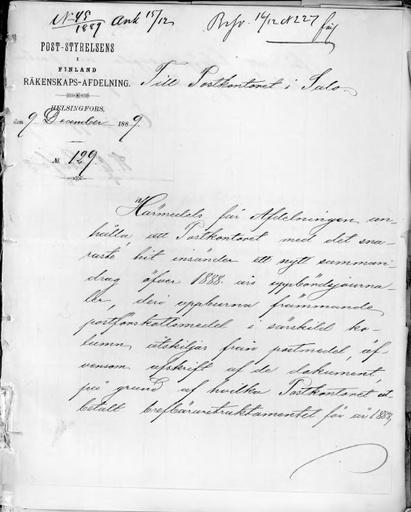 No 45/1889 Ank 15/12 Besv. 16/12 N 227
POST-STYRELSENS
I
FINLAND
RÄKENSKAPS-AFDELNING.
Till Postkontoret i Salo.
HELSINGFORS,
den 9 December 1889.
No 129.
Härmedels får Afdelningen an-
hålla att Postkontoret med det sna-
raste hit insänder ett nytt samman-
drag öfver 1888 års uppbördsjourna-
ler, deri uppburna främmande
postförskottsmedel i särskild ko-
lumn utskiljas från postmedel, äf-
vensom afskrift af de dokument,
på grund af hvilka Postkontoret ut-
betalt brefbäraretraktamentet för år 1888,